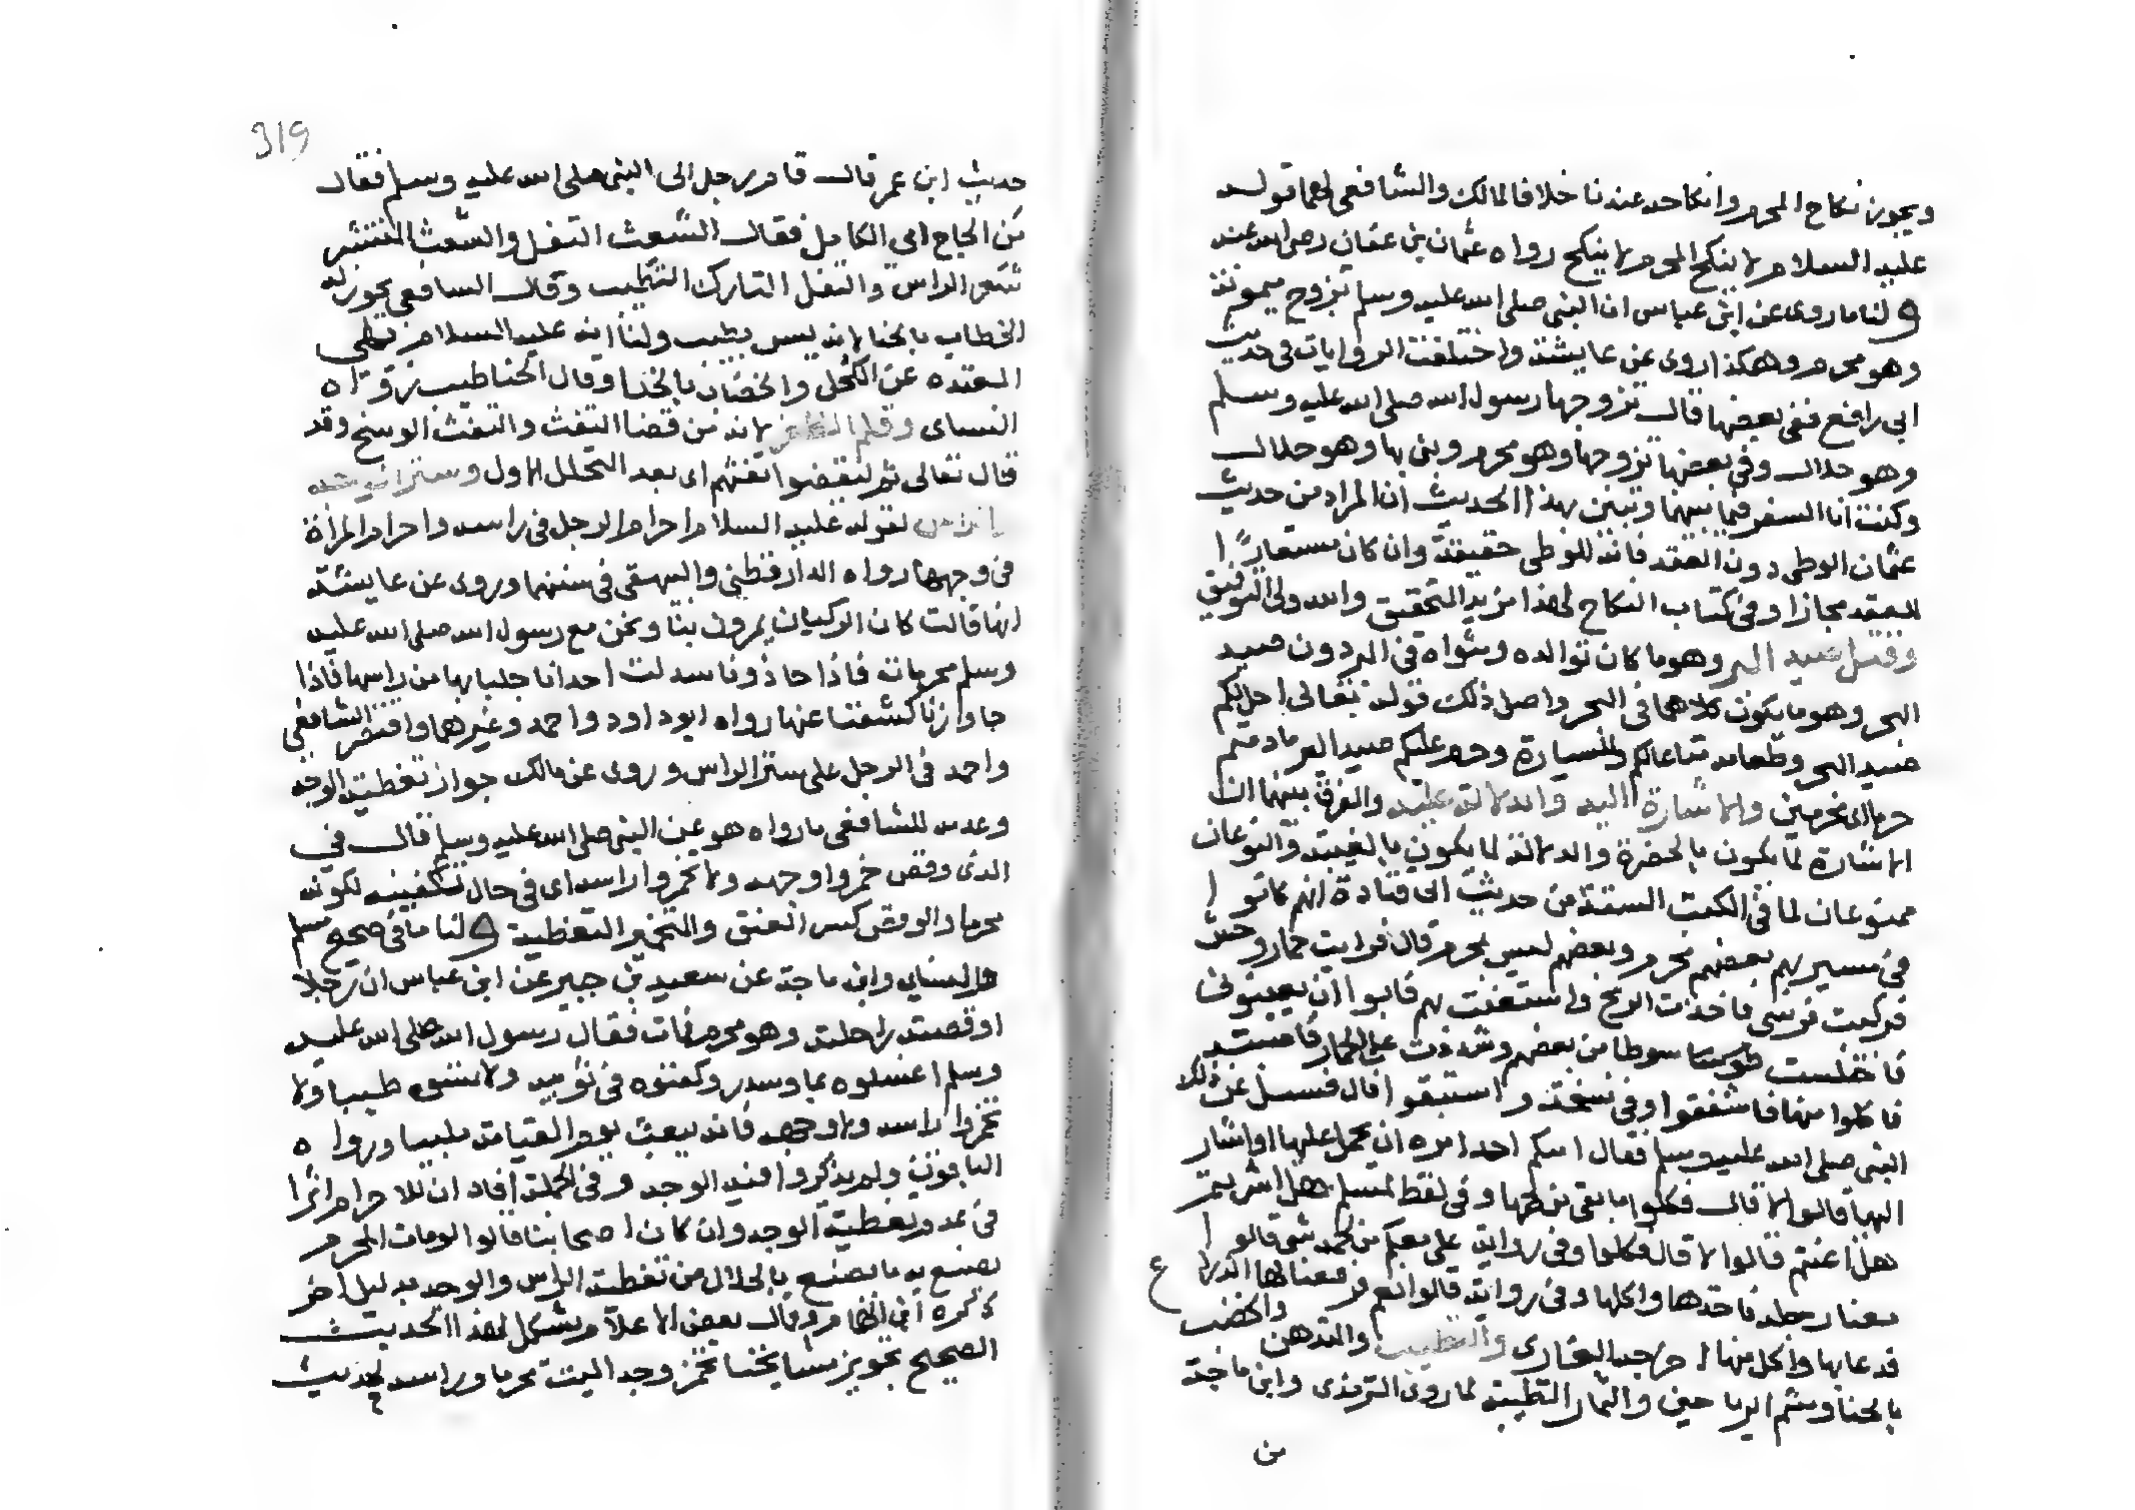 ويجوز نكاح المحرم وانكاحه عندنا خلافا لمالك والشافعي لهما قوله
عليه السلام لا ينكح المحرم لا ينكح رواه عثمان بن عفان رضي الله عنه
ولنا ما روى عن ابن عباس ان النبي صلى الله عليه وسلم تزوج ميمونة
وهو محرم وهكذا روى عن عايشة واختلفت الروايات في حديث
ابي رافع ففي بعضها قال تزوجها رسول الله صلى الله عليه وسلم
وهو حلال وفي بعضها تزوجها وهو محرم وبنى بها وهو حلال
وكنت انا السفر فيما بينهما وتبين بهذا الحديث ان المراد من حديث
عثمان الوطي دون العقد فانه للوطي حقيقة وان كان مستعارًا
للعقد مجازا وفي كتاب النكاح لهذا مزيد التحقيق والله ولي التوفيق
وقتل صيد البر وهو ما كان توالده ومثواه في البر دون صيد
البحر وهو ما يكون كلاهما في البحر واصل ذلك قوله تعالى احل لكم
صيد البحر وطعامه متاعا لكم وللسيارة وحرم عليكم صيد البر ما دمتم
حرما اي محرمين والاشارة اليه والدلالة عليه والفرق بينهما ان
الاشارة لما يكون بالحضرة والدلالة لما يكون بالغيبة والنوعان
ممنوعان لما في الكتب الستة من حديث ابي قتادة انهم كانوا
في مسير لهم بعضهم محرم وبعضهم ليس بمحرم قال فرايت حمار وحش
فركبت فرسي فاخذت الرمح واستعنت بهم فابوا ان يعينوني
فاختلست سوطا من بعضهم وشددت على الحمار فاصبته
فاكلوا منها فاشفقوا وفي نسخة واستبقوا قال فسئل عن ذلك
النبي صلى الله عليه وسلم فقال امنكم احد امره ان يحمل عليها او اشار
اليها قالوا لا قال فكلوا ما بقي من لحمها وفي لفظ لمسلم هل اشرتم
هل اعنتم قالوا لا قال فكلوا وفي رواية هل معكم من لحمه شي قالوا
معنا رجله فاخذها واكلها وفي رواية قالوا نعم معنا لها الذراع
فدعا بها واكل منها اخرجه البخاري والتطيب والتدهن والخضب
بالحنا وشم الرياحين والثمار الطيبة لما روى الترمذي وابن ماجة
من
319
حديث ابن عمر قال قام رجل الى النبي صلى الله عليه وسلم فقال
من الحاج اي الكامل فقال الشعث التفل والشعث المنتشر
شعر الراس والتفل التارك التطيب وقال الشافعي يجوز له
الخضاب بالحنا لانه ليس بطيب ولنا انه عليه السلام نهى
المعتدة عن الكحل والخضاب بالحنا وقال الحنا طيب رواه
النساى وقلم الظفر لانه من قضا التفث والتفث الوسخ وقد
قال تعالى ثم ليقضوا تفثهم اى بعد التحلل الاول وستر الوجه
والراس لقوله عليه السلام احرام الرجل في راسه واحرام المراة
في وجهها رواه الدارقطني والبيهقي في سننهما وروى عن عايشة
انها قالت كان الركبان يمرون بنا ونحن مع رسول الله صلى الله عليه
وسلم محرمات فاذا حاذونا سدلت احدانا جلبابها من راسها فاذا
جاوزنا كشفنا عنها رواه ابو داود واحمد وغيرهما واقتصر الشافعي
واحمد في الرجل على ستر الراس وروى عن مالك جواز تغطية الوجه
وعمدة للشافعي ما رواه هو عن النبي صلى الله عليه وسلم قال في
الذى وقص خمروا وجهه ولا تخمروا راسه اى في حال تكفينه لكونه
محرما والوقص كسر العنق والتخمير التغطية ولنا ما في صحيح مسلم
والنساي وابن ماجة عن سعيد بن جبير عن ابن عباس ان رجلا
اوقصته راحلته وهو محرم فمات فقال رسول الله صلى الله عليه
وسلم اغسلوه بما وسدر وكفنوه في ثوبيه ولا تمسوه طيبا ولا
تخمروا راسه ولا وجهه فانه يبعث يوم القيامة ملبيا ورواه
الباقون ولم يذكروا فيه الوجه وفي الجملة افاد ان للاحرام اثرا
في عدم تغطية الوجه وان كان اصحابنا قالوا لو مات المحرم
يصنع به ما يصنع بالحلال من تغطية الراس والوجه بدليل اخر
ذكره ابن الهمام وقال بعض الاعلام يشكل لهذا الحديث
الصحيح تجويز مشايخنا تخمر وجه الميت محرما وراسه لحديث